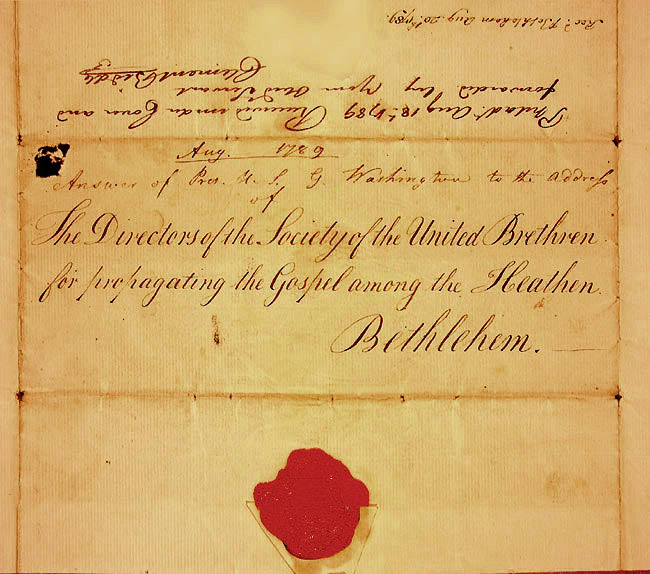 Rec.d Bethlehem Aug. 20th 1789
Philad.a Aug 18th 1789 Received under Cover and
forwarded by your Obed Servant
Clement Biddle
Aug. 1789
Answer of Pres. U. S. G. Washington to the address
of
The Directors of the Society of the United Brethren
for propagating the Gospel among the Heathen.
Bethlehem.